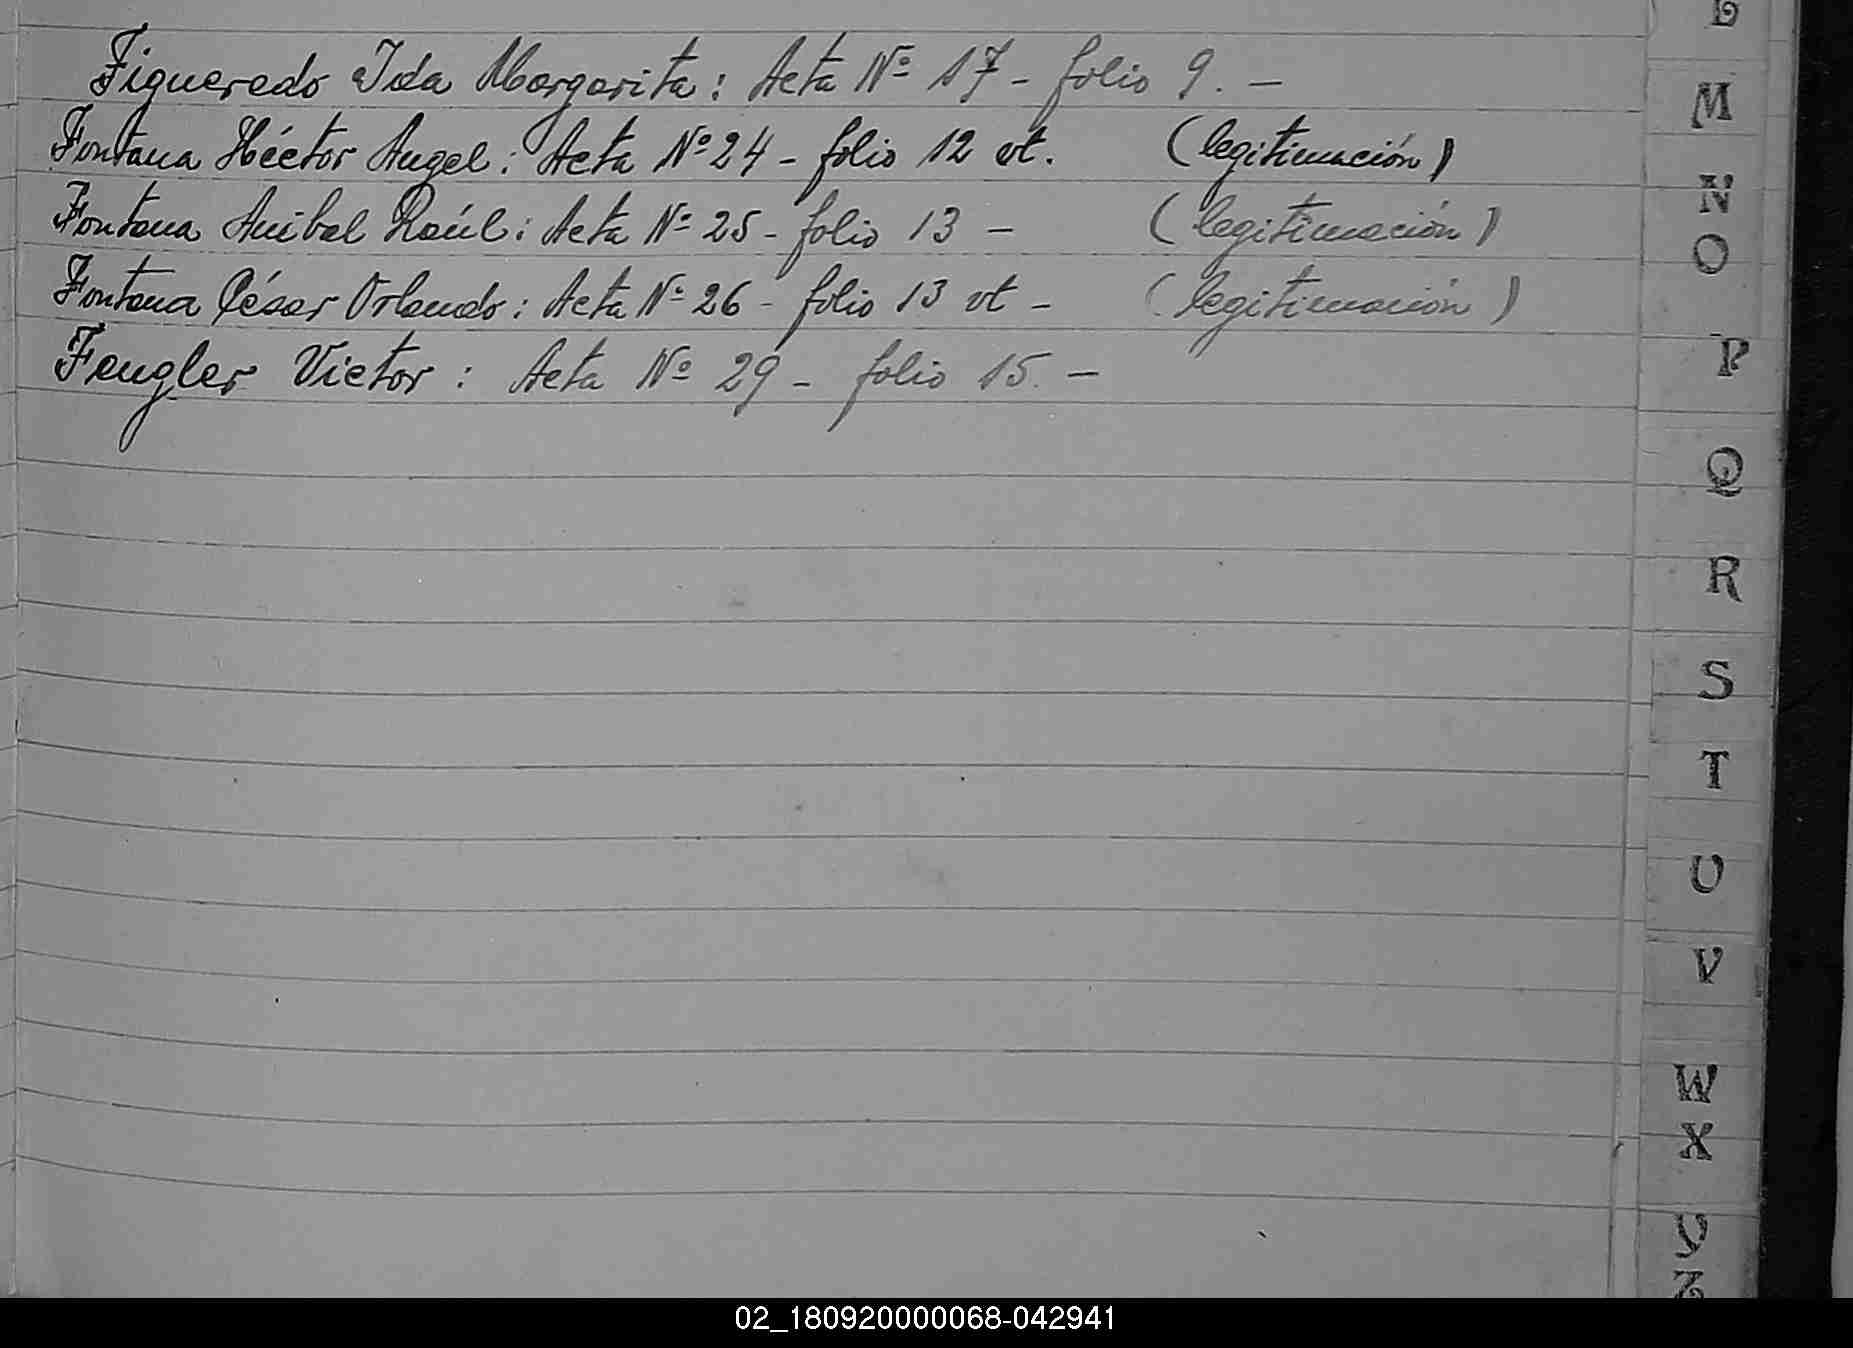 Figueredo Ida Margarita: Acta Nº 17 - folio 9. -
Fontana Héctor Angel: Acta Nº 24 - folio 12 vt. (legitimación)
Fontana Anibal Raúl: Acta Nº 25 - folio 13 - (legitimación)
Fontana César Orlando: Acta Nº 26 - folio 13 vt - (legitimación)
Fengler Victor: Acta Nº 29 - folio 15. -
L
M
N
O
P
Q
R
S
T
U
V
W
X
Y
Z
02_180920000068-042941